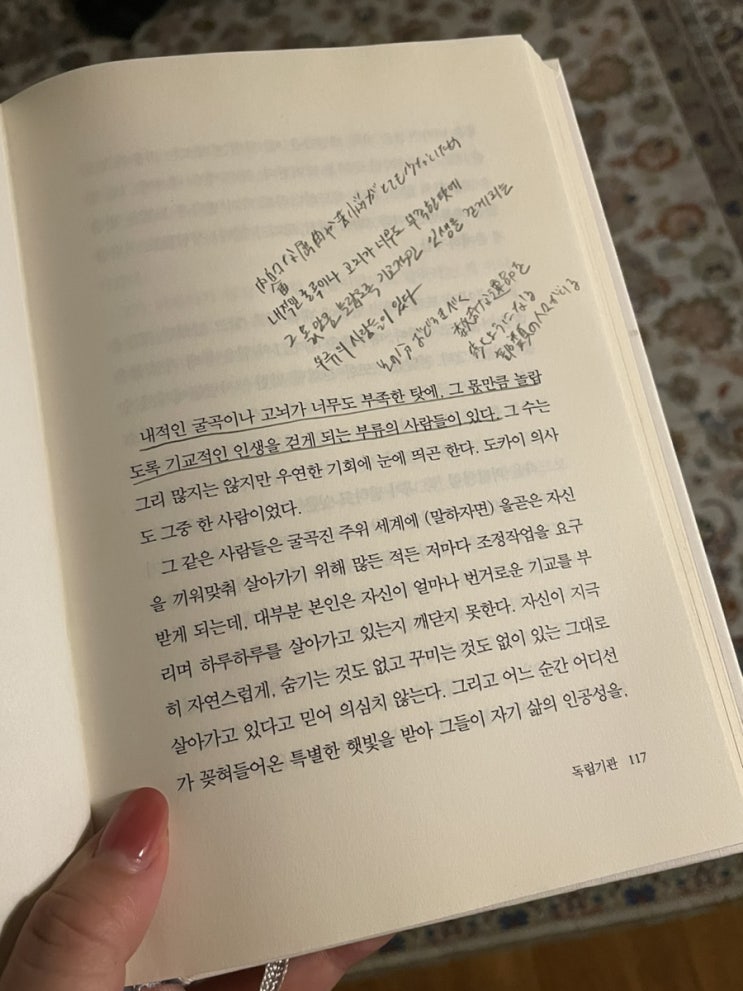 내적인 굴곡이나 고뇌가 너무도 부족한 탓에
그 몫만큼 놀랍도록 기교적인 인생을 걷게되는
부류의 사람들이 있다
내적인 굴곡이나 고뇌가 너무도 부족한 탓에, 그 몫만큼 놀랍
도록 기교적인 인생을 걷게 되는 부류의 사람들이 있다. 그 수는
그리 많지는 않지만 우연한 기회에 눈에 띄곤 한다. 도카이 의사
도 그중 한 사람이었다.
그 같은 사람들은 굴곡진 주위 세계에 (말하자면) 올곧은 자신
을 끼워맞춰 살아가기 위해 많든 적든 저마다 조정작업을 요구
받게 되는데, 대부분 본인은 자신이 얼마나 번거로운 기교를 부
리며 하루하루를 살아가고 있는지 깨닫지 못한다. 자신이 지극
히 자연스럽게, 숨기는 것도 없고 꾸미는 것도 없이 있는 그대로
살아가고 있다고 믿어 의심치 않는다. 그리고 어느 순간 어디선
가 꽂혀들어온 특별한 햇빛을 받아 그들이 자기 삶의 인공성을,
독립기관 117